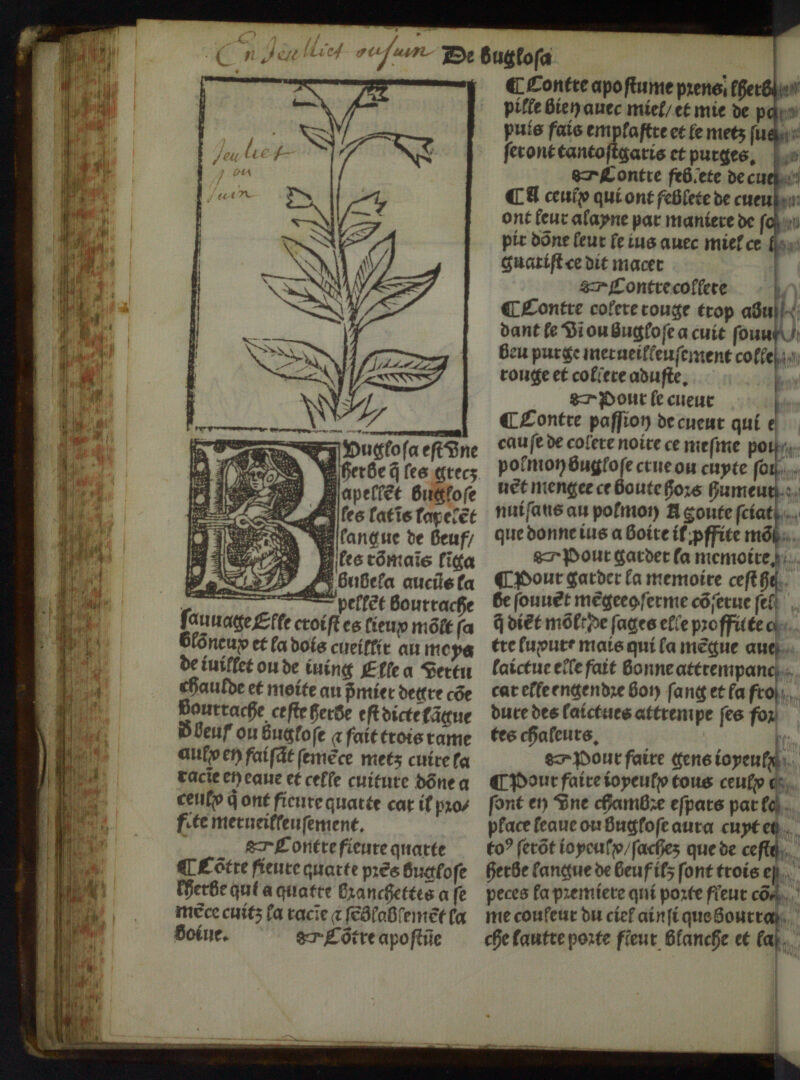 En Jeullet ou juin
De bugloſa
Jeulliet
ou
Juin
Bugloſa eſt vne
herbe q̄ les grecz
apellēt bugloſe
les latīs lapelēt
langue de beuf/
les rōmaīs līga
bubela aucūs la
pellēt bourrache
ſauuage Elle croiſt es lieux mōlt ſa
blōneux et la dois cueillir au moys
de iuillet ou de iuing Elle a vertu
chaulde et moite au p̄mier degre cōe
bourrache ceſte herbe eſt dicte lāgue
d̄ beuf ou bugloſe ⁊ fait trois rame
aulx en faiſāt ſemēce metz cuire la
racīe en eaue et celle cuiture dōne a
ceulx q̄ ont fieure quarte car il pro/
fite merueilleuſement.
☞ Contre fieure quarte
¶ Cōtre fieure quarte prēs bugloſe
lherbe qui a quatre branchettes a ſe
mēce cuitz la racīe ⁊ ſēblablemēt la
boiue. ☞ Cōtre apoſtūe
¶ Contre apoſtume prens lherb
pille bien auec miel/ et mie de
puis fais emplaſtre et le metz
ſeront tantoſt garis et purges.
☞ Contre feblete de
¶ A ceulx qui ont feblete de
ont leur alayne par maniere de
pir dōne leur le ius auec miel ce
guariſt ce dit macer
☞ Contre collere
¶ Contre colere rouge trop
dant le vī ou bugloſe a cuit
beu purge merueilleuſement
rouge et collere aduſte.
☞ Pour le cueur
¶ Contre paſſion de cueur qui
cauſe de colere noire ce meſme
polmon bugloſe crue ou cuyte
uēt mengee ce boute hors
nuiſans au polmon A goute
que donne ius a boire il ꝓffite
☞ Pour garder la memoire.
¶ Pour garder la memoire ceſt
be ſouuēt mēgee ꝯferme cōſerue
q̄ diēt mōlt de ſages elle proffite
tre luxure mais qui la mēgue
laictue elle fait bonne
car elle engendre bon ſang et la
dure des laictues attrempe ſes
tes chaleurs.
☞ Pour faire gens
¶ Pour faire ioyeulx tous ceulx
ſont en vne chambre eſpars par
place leaue ou bugloſe aura cuyt
toꝰ ſerōt ioyeulx/ ſachez que de
herbe langue de beuf ilz ſont trois
peces la premiere qui porte fleur
me couleur du ciel ainſi que
che lautre porte fleur blanche et